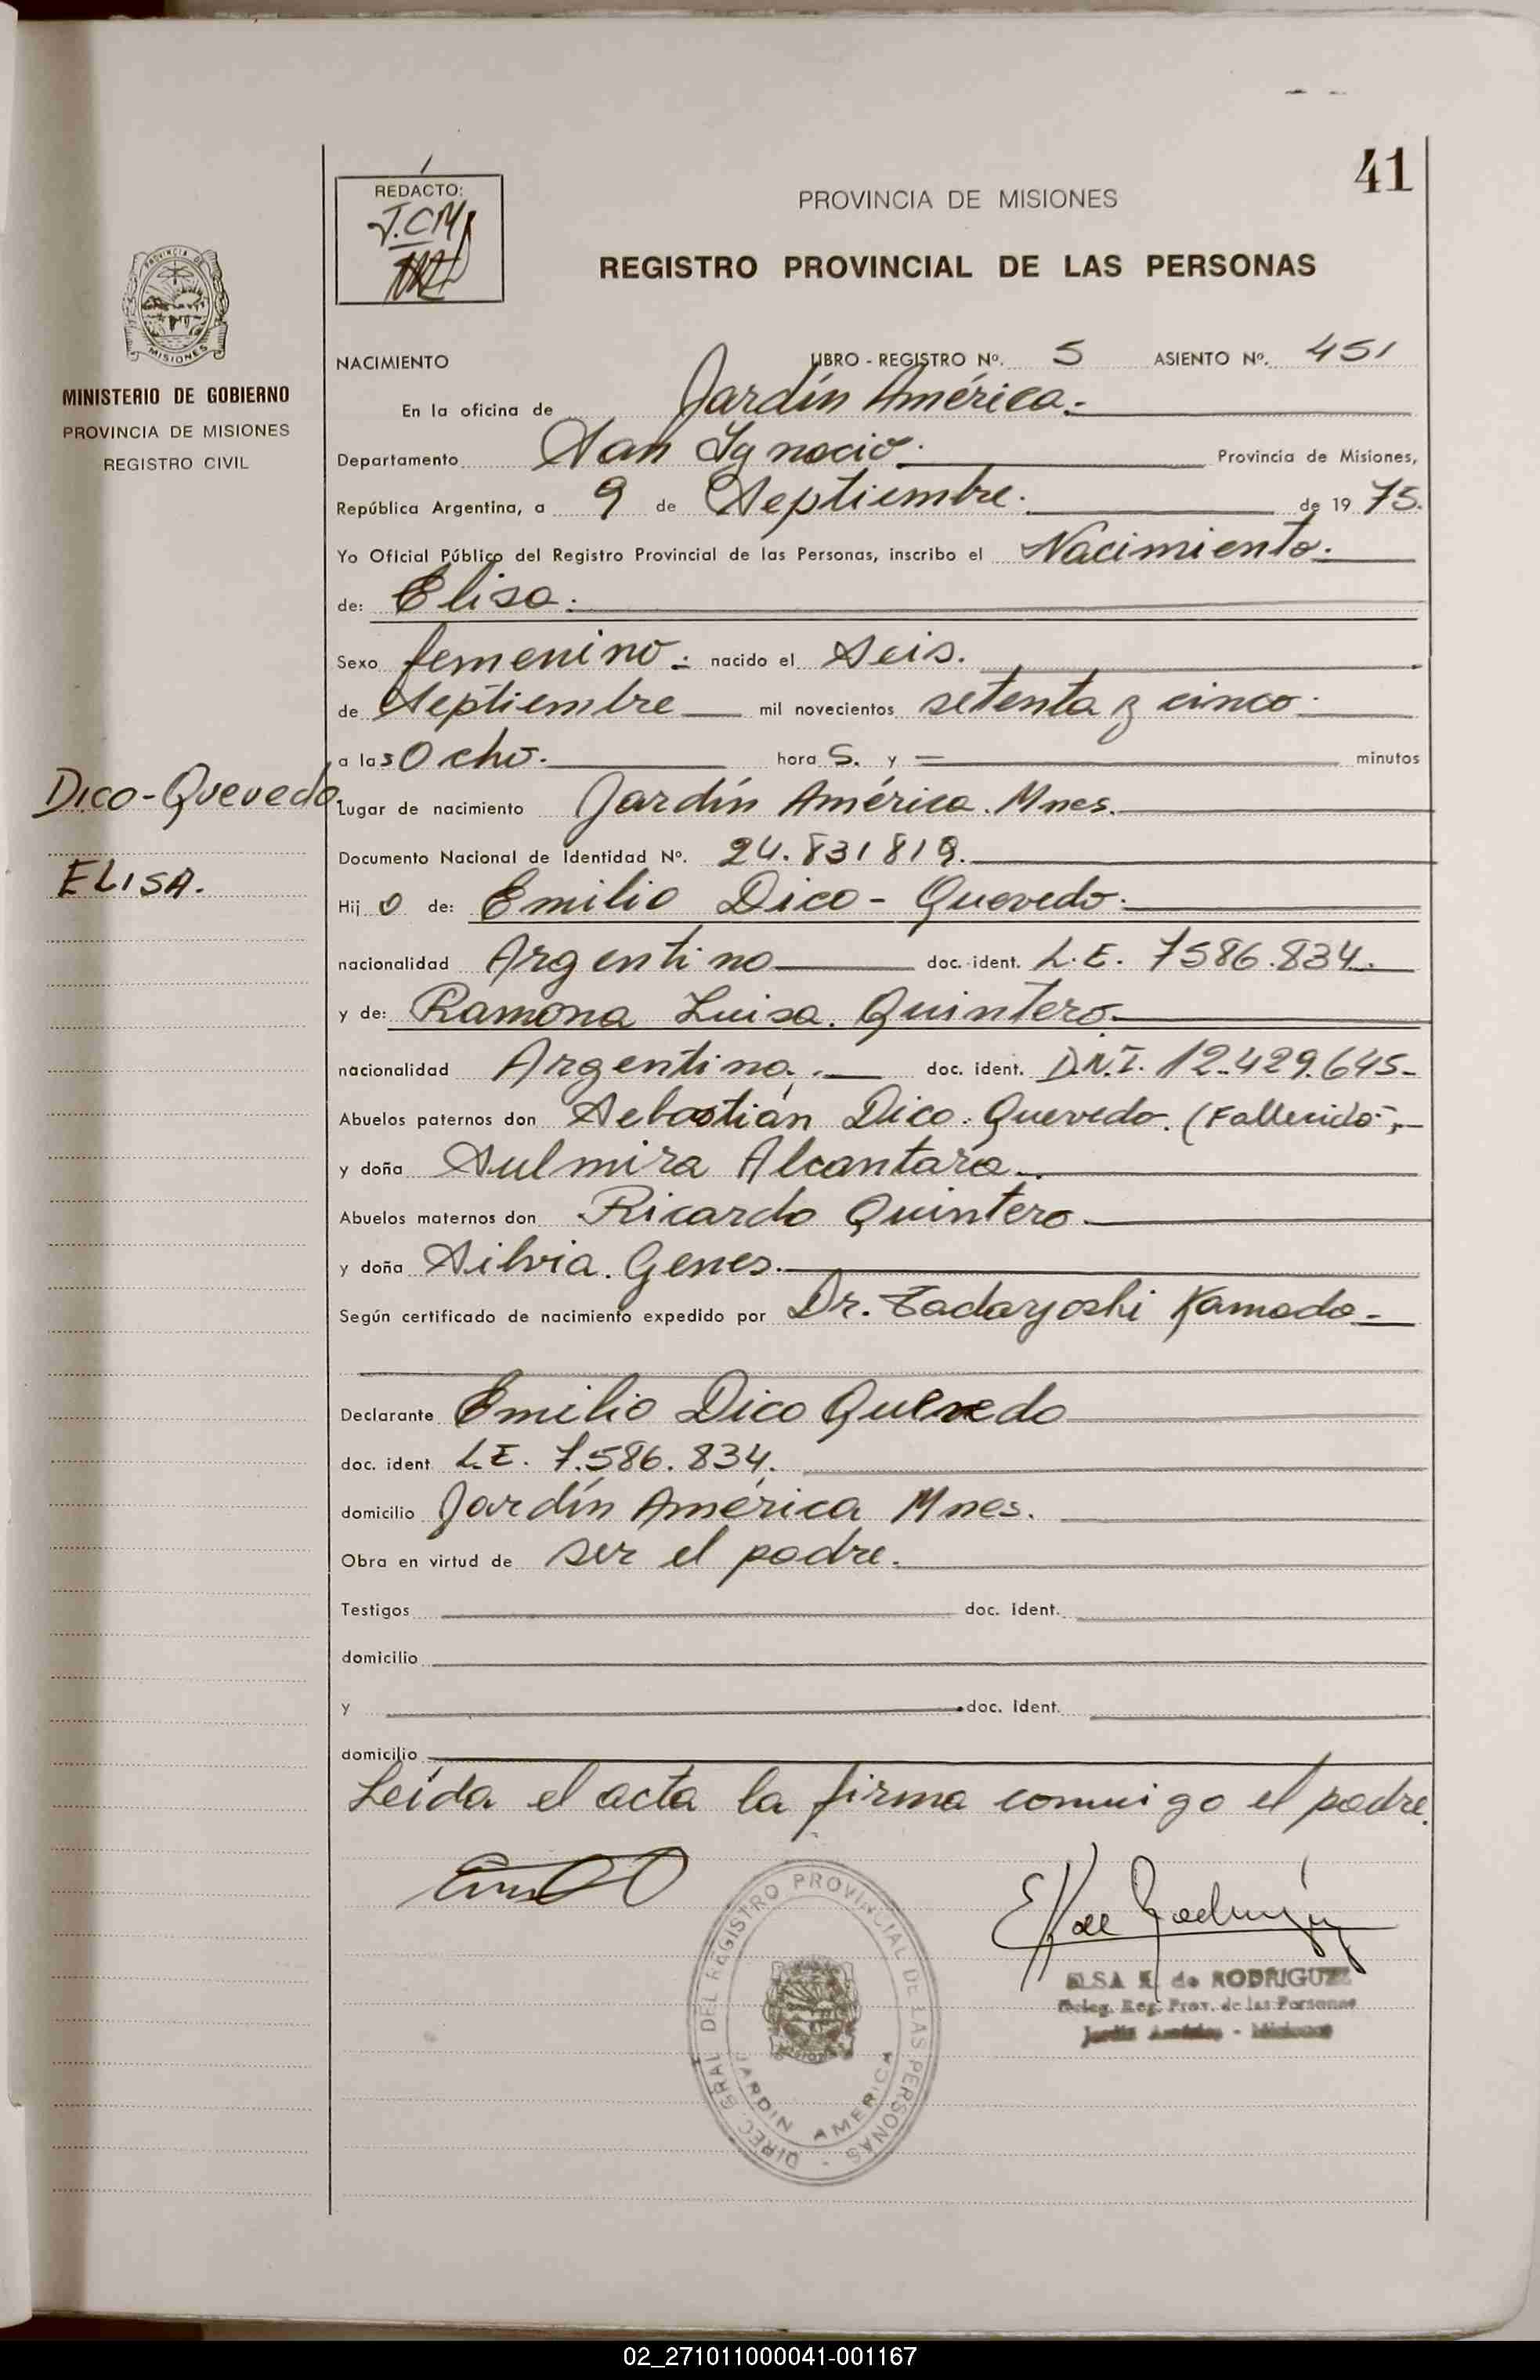 41
REDACTO:
J.C.M.
PROVINCIA DE MISIONES
REGISTRO PROVINCIAL DE LAS PERSONAS
PROVINCIA DE
MISIONES
MINISTERIO DE GOBIERNO
PROVINCIA DE MISIONES
REGISTRO CIVIL
NACIMIENTO LIBRO - REGISTRO Nº. 5 ASIENTO Nº. 451
En la oficina de Jardín América.-
Departamento San Ignacio. Provincia de Misiones,
República Argentina, a 9 de Septiembre. de 1975.
Yo Oficial Público del Registro Provincial de las Personas, inscribo el Nacimiento.
de: Elisa.
Sexo femenino. nacido el Seis.
de Septiembre mil novecientos setenta y cinco.
a las Ocho. horas. y = minutos
Dico-Quevedo.
Lugar de nacimiento Jardín América. Mnes.
Documento Nacional de Identidad Nº. 24.831819.
ELISA.
Hija de: Emilio Dico - Quevedo.
nacionalidad Argentino doc. ident. L.E. 7586.834.
y de: Ramona Luisa. Quintero.
nacionalidad Argentina. doc. ident. D.N.I. 12.429.645-
Abuelos paternos don Sebastián Dico. Quevedo. (Fallecido-
y doña Sulmira Alcantara.
Abuelos maternos don Ricardo Quintero
y doña Silvia. Genes.
Según certificado de nacimiento expedido por Dr. Tadayoshi Kamada-
Declarante Emilio Dico Quevedo
doc. ident L.E. 7.586.834.
domicilio Jardín América Mnes.
Obra en virtud de ser el padre.
Testigos doc. ident.
domicilio
y doc. ident.
domicilio
Leída el acta la firma conmigo el padre.
DIREC. GRAL DEL REGISTRO PROVINCIAL DE LAS PERSONAS -
JARDIN AMERICA
ELSA K. de RODRIGUEZ
Deleg. Reg. Prov. de las Personas
Jardín América - Misiones
02_271011000041-001167